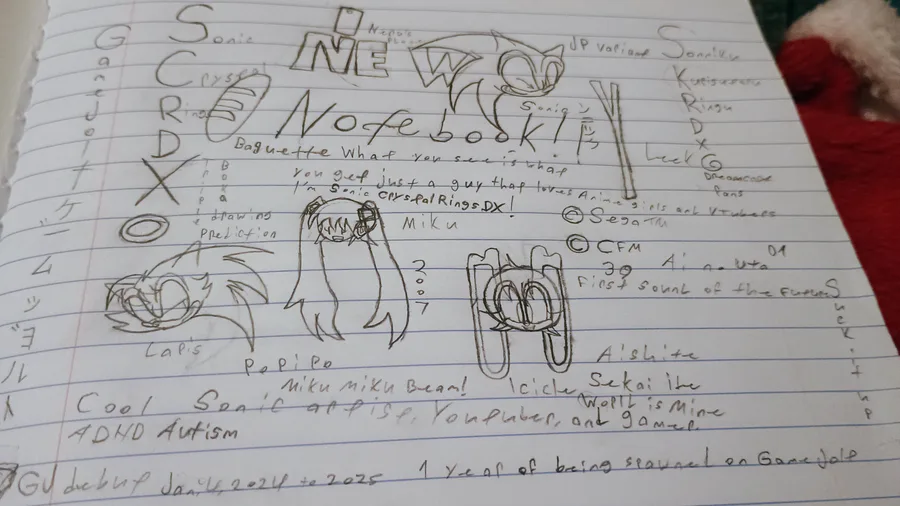 Sonic
Crystal
Rings
D
X
iNEW
Notebook!
JP variant
Sonniku
Kurisutaru
Ringu
D
X
Dreamcase
Fans
Sonic
ソニック
Leek
Gamejolt
ゲームジョルト
Baguette What you see is what
you get just a guy that loves Anime girls and Vtubers
I'm Sonic Crystal Rings DX!
drawing
Prediction
Miku
2007
© Sega TM
© CFM
39
Ai no Uta
01
First sount of the Future
Suck it up
Lapis
PoPiPo
Miku Miku Beam!
Icicle
Aishite
Sekai ihe
Worlt is mine
Cool Sonic artist, Youtuber, and gamer.
ADHD Autism
GJ debut Jan 14, 2024 to 2025 1 year of being spawned on GameJolt